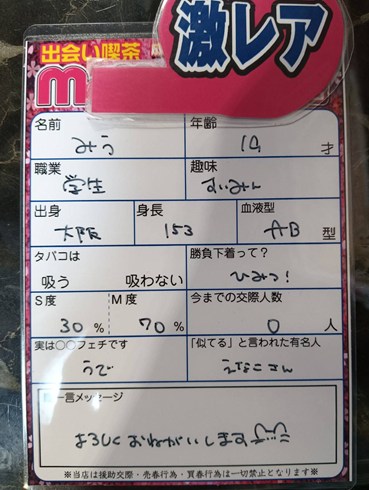 激レア
出会い喫茶
m
名前 年齢
みう 才
職業 趣味
学生 すいみん
出身 身長 血液型
大阪 153 AB 型
タバコは 勝負下着って?
吸う 吸わない ひみつ!
S度 M度 今までの交際人数
30 % 70 % 0 人
実は○○フェチです 「似てる」と言われた有名人
うで えなこさん
一言メッセージ
よろしくおねがいします
※当店は援助交際・売春行為・買春行為は一切禁止となります※